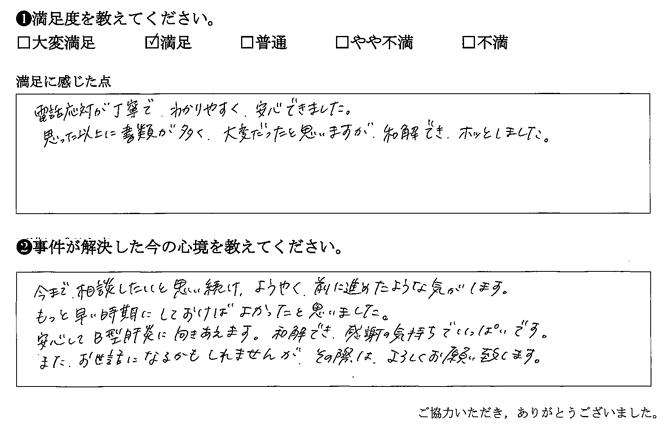 ❶満足度を教えてください。
□大変満足 ☑満足 □普通 □やや不満 □不満
満足に感じた点
電話応対が丁寧で、わかりやすく、安心できました。
思った以上に書類が多く、大変だったと思いますが、和解でき、ホッとしました。
❷事件が解決した今の心境を教えてください。
今まで、相談したいと思い続け、ようやく、前に進めたような気がします。
もっと早い時期にしておけばよかったと思いました。
安心してB型肝炎に向きあえます。和解でき、感謝の気持ちでいっぱいです。
また、お世話になるかもしれませんが、その際は、よろしくお願い致します。
ご協力いただき，ありがとうございました。